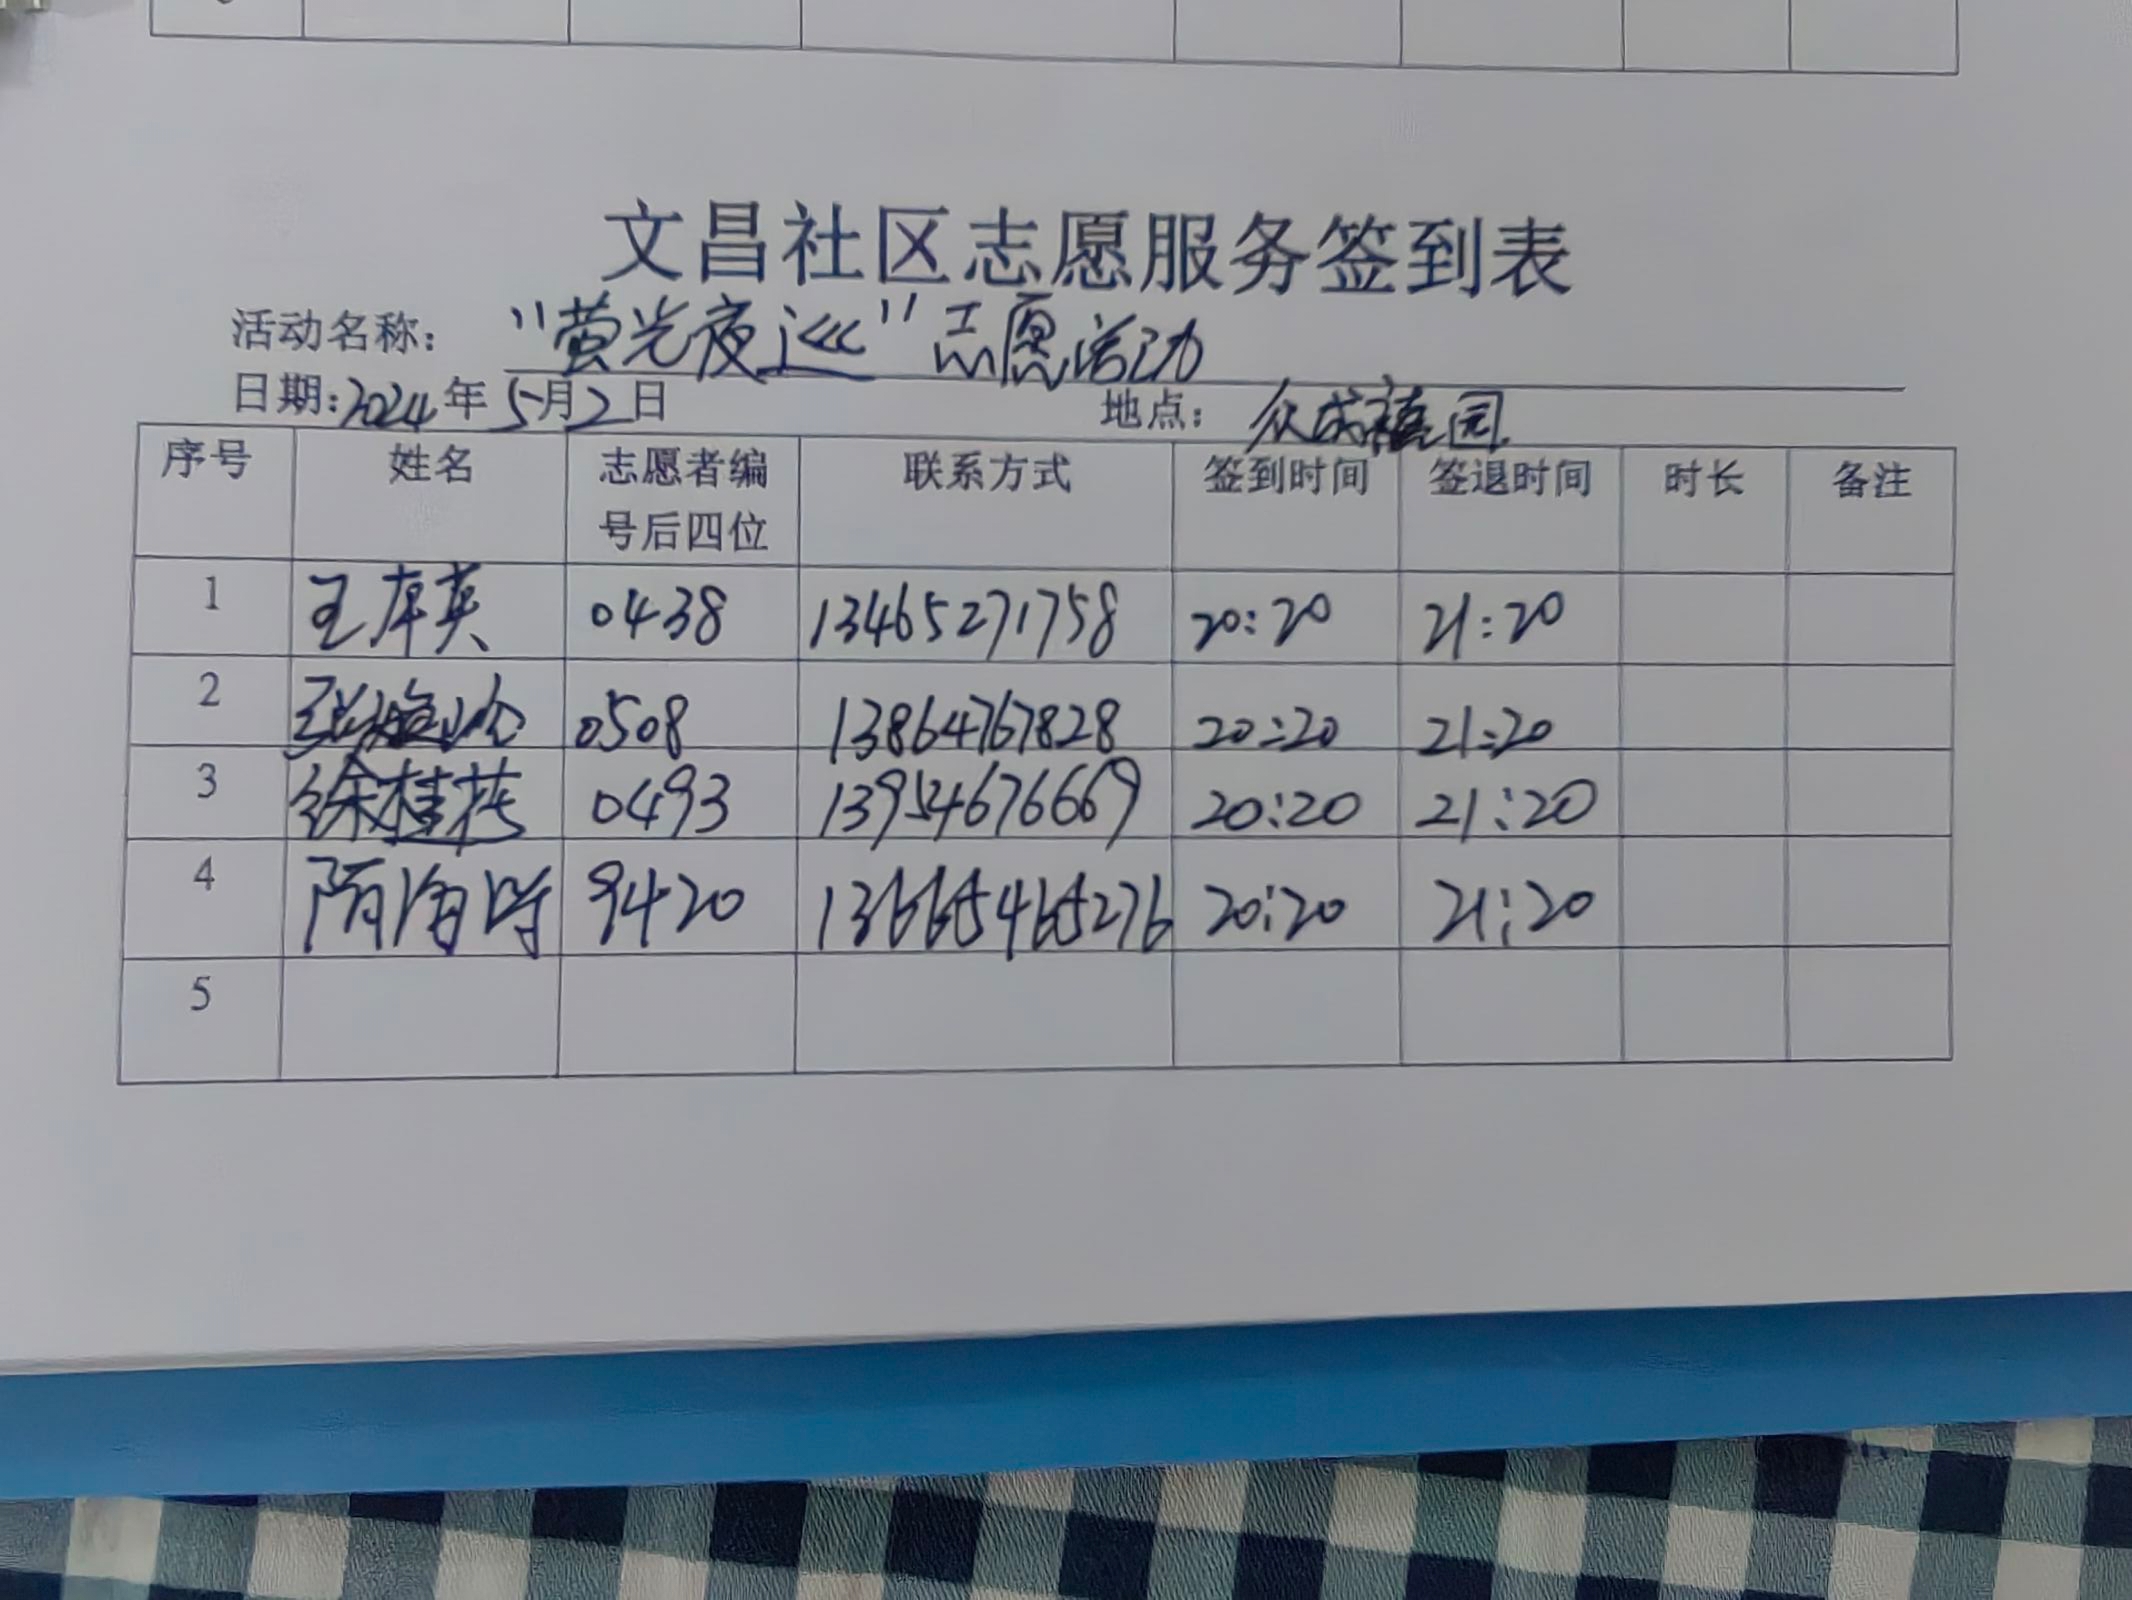 文昌社区志愿服务签到表
活动名称: "萤光夜巡"志愿活动
日期:2024年5月2日 地点: 众成禧园
序号 姓名 志愿者编号后四位 联系方式 签到时间 签退时间 时长 备注
1 王 英 0438 13465271758 20:20 21:20
2 张 0508 13864767828 20:20 21:20
3 徐桂 0493 13954676669 20:20 21:20
4 隋 9420 13665465276 20:20 21:20
5